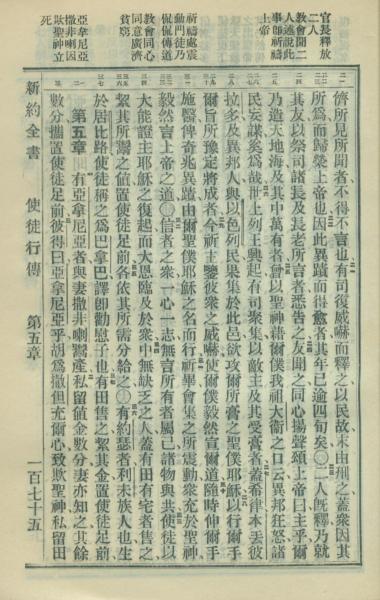 官長釋放
二人
教會聞二
人述說此
事卽祈禱
上帝
祈禱處震
動門徒乃
侃侃傳道
教會同心
同意廣濟
貧窮
亞拿尼亞
撒非喇因
欺聖神立
死
儕所見所聞者不得不言也有司復威嚇而釋之以民故末由刑之蓋衆因其
所爲而歸榮上帝也因此異蹟而得愈者其年已逾四旬矣〇二人旣釋乃就
其友以祭司諸長及長老所言者悉告之友聞之同心揚聲頌上帝曰主乎爾
乃造天地海及其中萬有者曾以聖神藉爾僕我祖大衛之口云異邦狂怒諸
民妄謀奚爲哉世上列王興起有司聚集以敵主及其受膏者蓋希律本丟彼
拉多及異邦人與以色列民果集於此邑欲攻爾所膏之聖僕耶穌以行爾手
爾旨所豫定將成者今祈主鑒彼衆之威嚇使爾僕毅然宣爾道隨時伸爾手
施醫俾奇兆異蹟由爾聖僕耶穌之名而行祈畢會集之所震動衆充於聖神
毅然言上帝之道〇信者之衆一心一志無言所有者屬己諸物與共使徒以
大能證主耶穌之復起而大恩臨及於衆中無缺乏之人蓋有田有宅者售之
絜其所鬻之值置使徒足前各依其所需分給之〇有約瑟者利未族人也生
於居比路使徒稱之爲巴拿巴譯卽勸慰子也有田售之絜其金置使徒足前
第五章　有亞拿尼亞者與妻撒非喇鬻產私留値金數分妻亦知之其餘
數分攜置使徒足前彼得曰亞拿尼亞乎胡爲撒但充爾心致欺聖神私留田
新約全書　使徒行傳　第五章　一百七十五